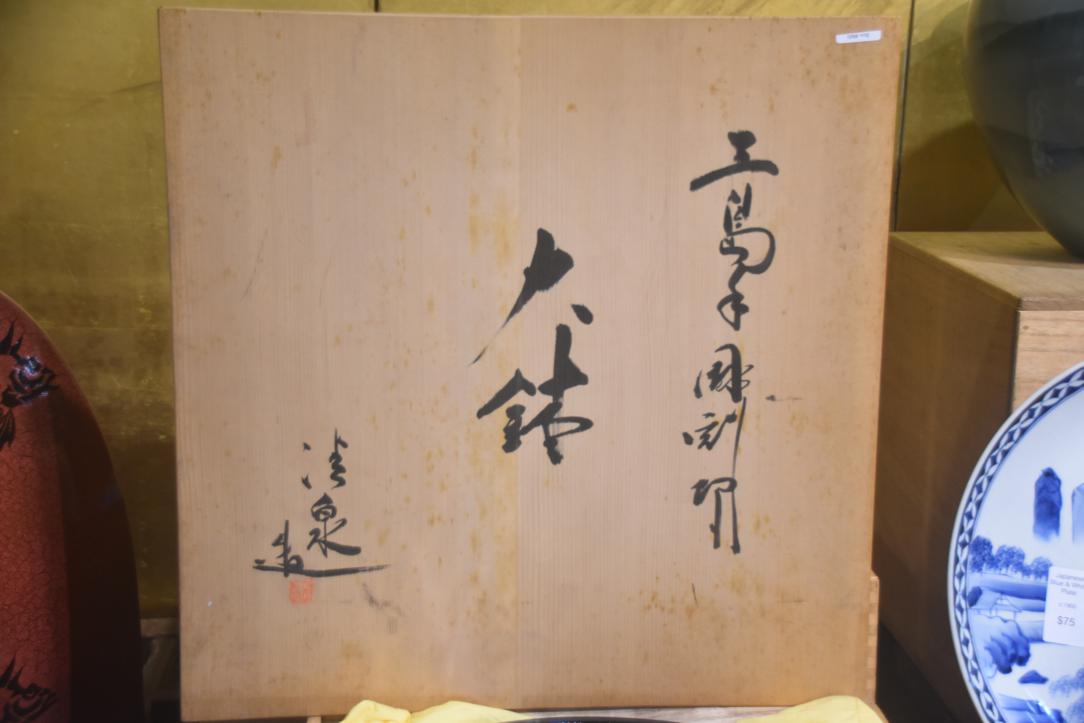 三島手彫刻明
大鉢
清泉造
Japanese
Blue & White
Plate
c.1900
$75